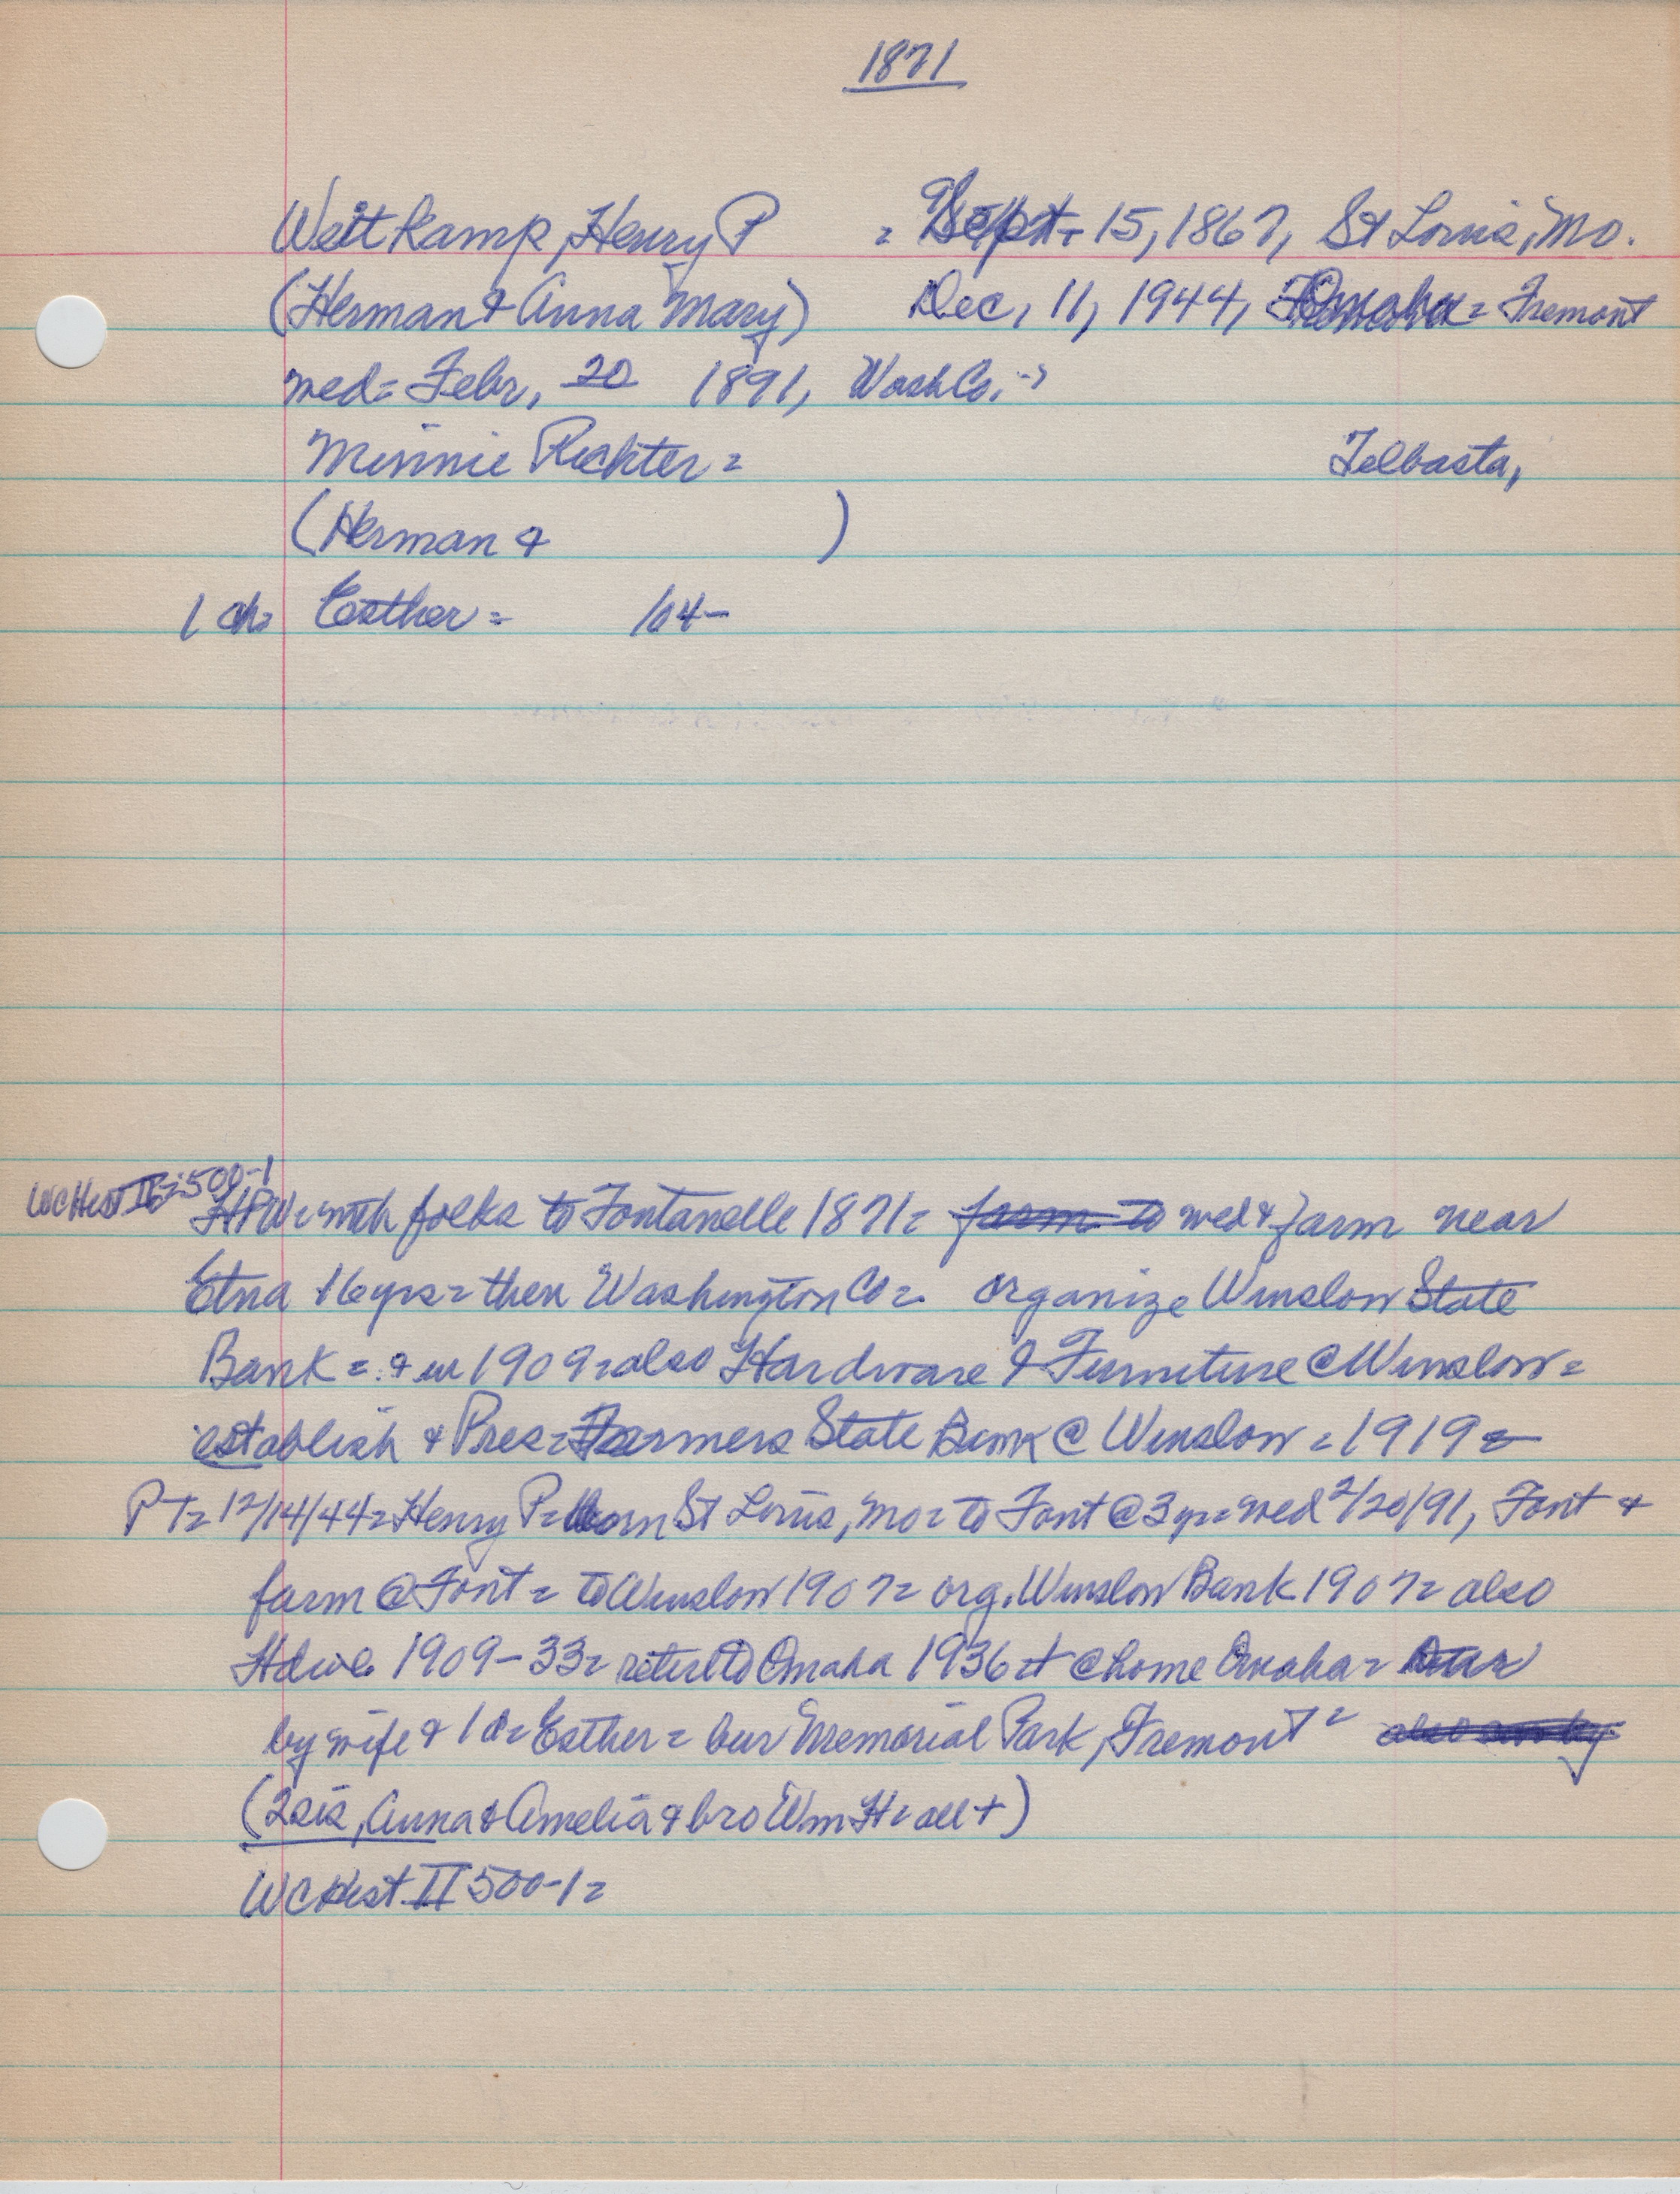 1871
Weitkamp, Henry P = Sept. 15, 1867, St Louis, Mo.
(Herman & Anna Mary) Dec, 11, 1944, Omaha = Fremont
wed = Febr, 20 1891, WashCo. →
Minnie Richter = Telbasta,
(Herman & )
1 ch = Esther = 104-
WCHist II = 500-1
HPW = with folks to Fontanelle 1871 = farm to wed & farm near
Etna 16 yrs = then Washington Co = organize Winslow State
Bank = & in 1909 = also Hardware & Furniture @ Winslow =
establish & Pres = Farmers State Bank @ Winslow = 1919 =
PT = 12/14/44 = Henry P = born St Louis, Mo = to Font @ 3 yr = wed 2/20/91, Font &
farm @ Font = to Winslow 1907 = org. Winslow Bank 1907 = also
Hdwe 1909-33 = retire to Omaha 1936 = + @ home Omaha =
by wife & 1 d = Esther = bur Memorial Park, Fremont = also sur by
(2 sis, Anna & Amelia & bro Wm H = all +)
WCHist II 500-1 =